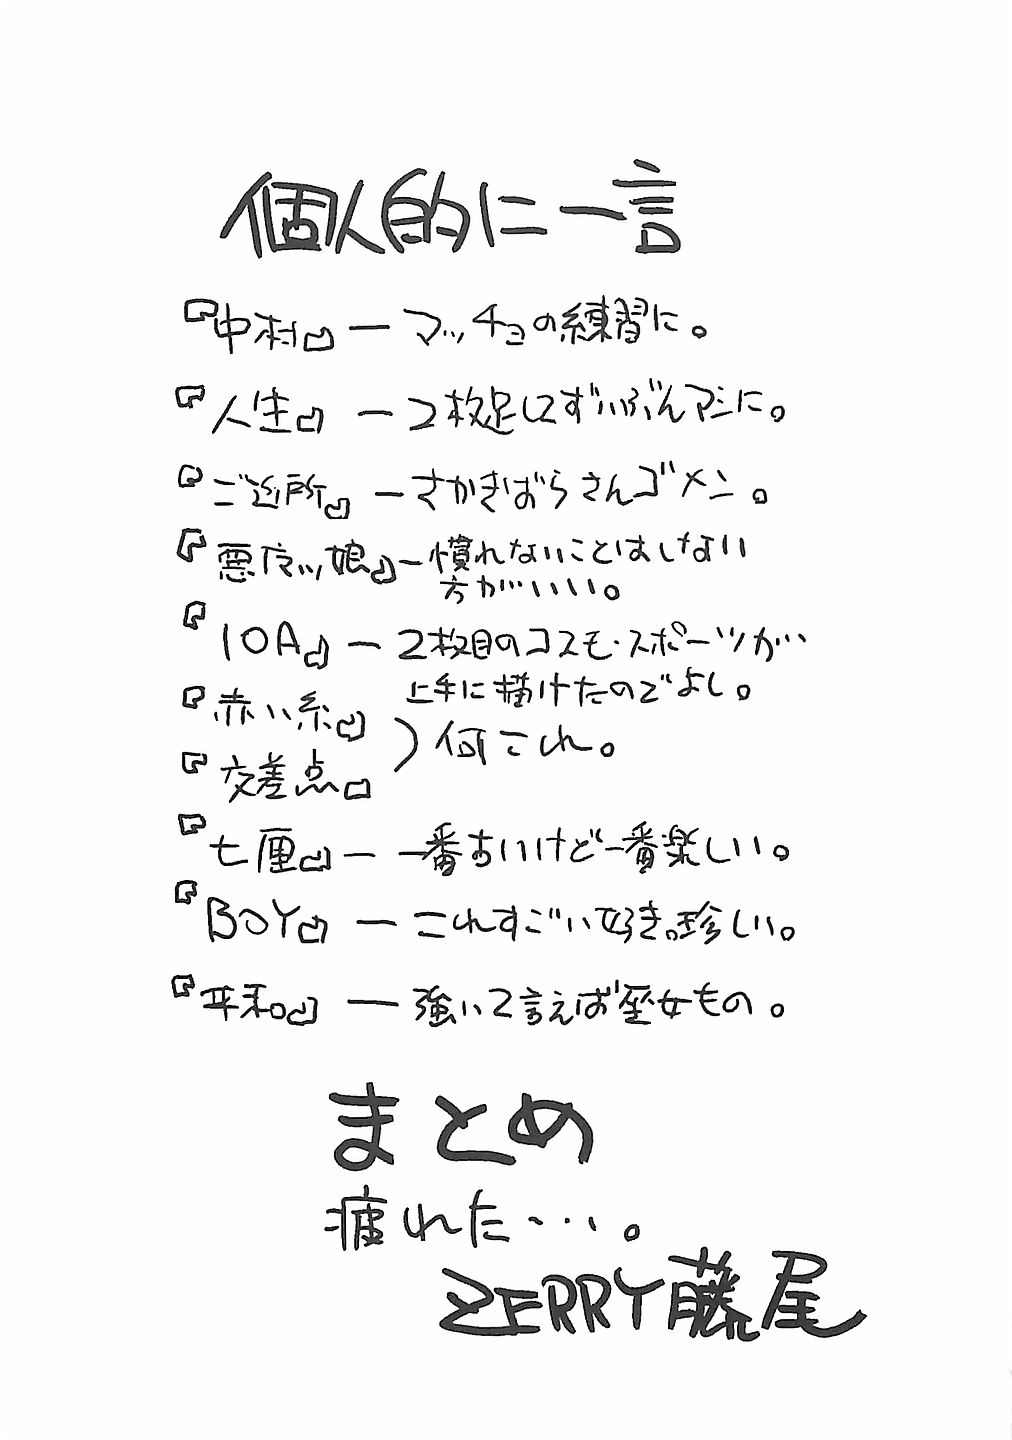 個人的に一言
『中村』ー マッチョの練習に。
『人生』ー 2枚足してずいぶんマシに。
『ご近所』ー さかきばらさんゴメン。
『悪ィッ娘』ー 慣れないことはしない
方がいいい。
『10A』ー 2枚目のコスモ・スポーツが…
上手に描けたのでよし。
『赤い糸』
『交差点』
) 何これ。
『七厘』ー 一番古いけど一番楽しい。
『BOY』ー これすごい好き。珍しい。
『平和。』ー 強いて言えば巫女もの。
まとめ
疲れた…。
ZERRY藤尾